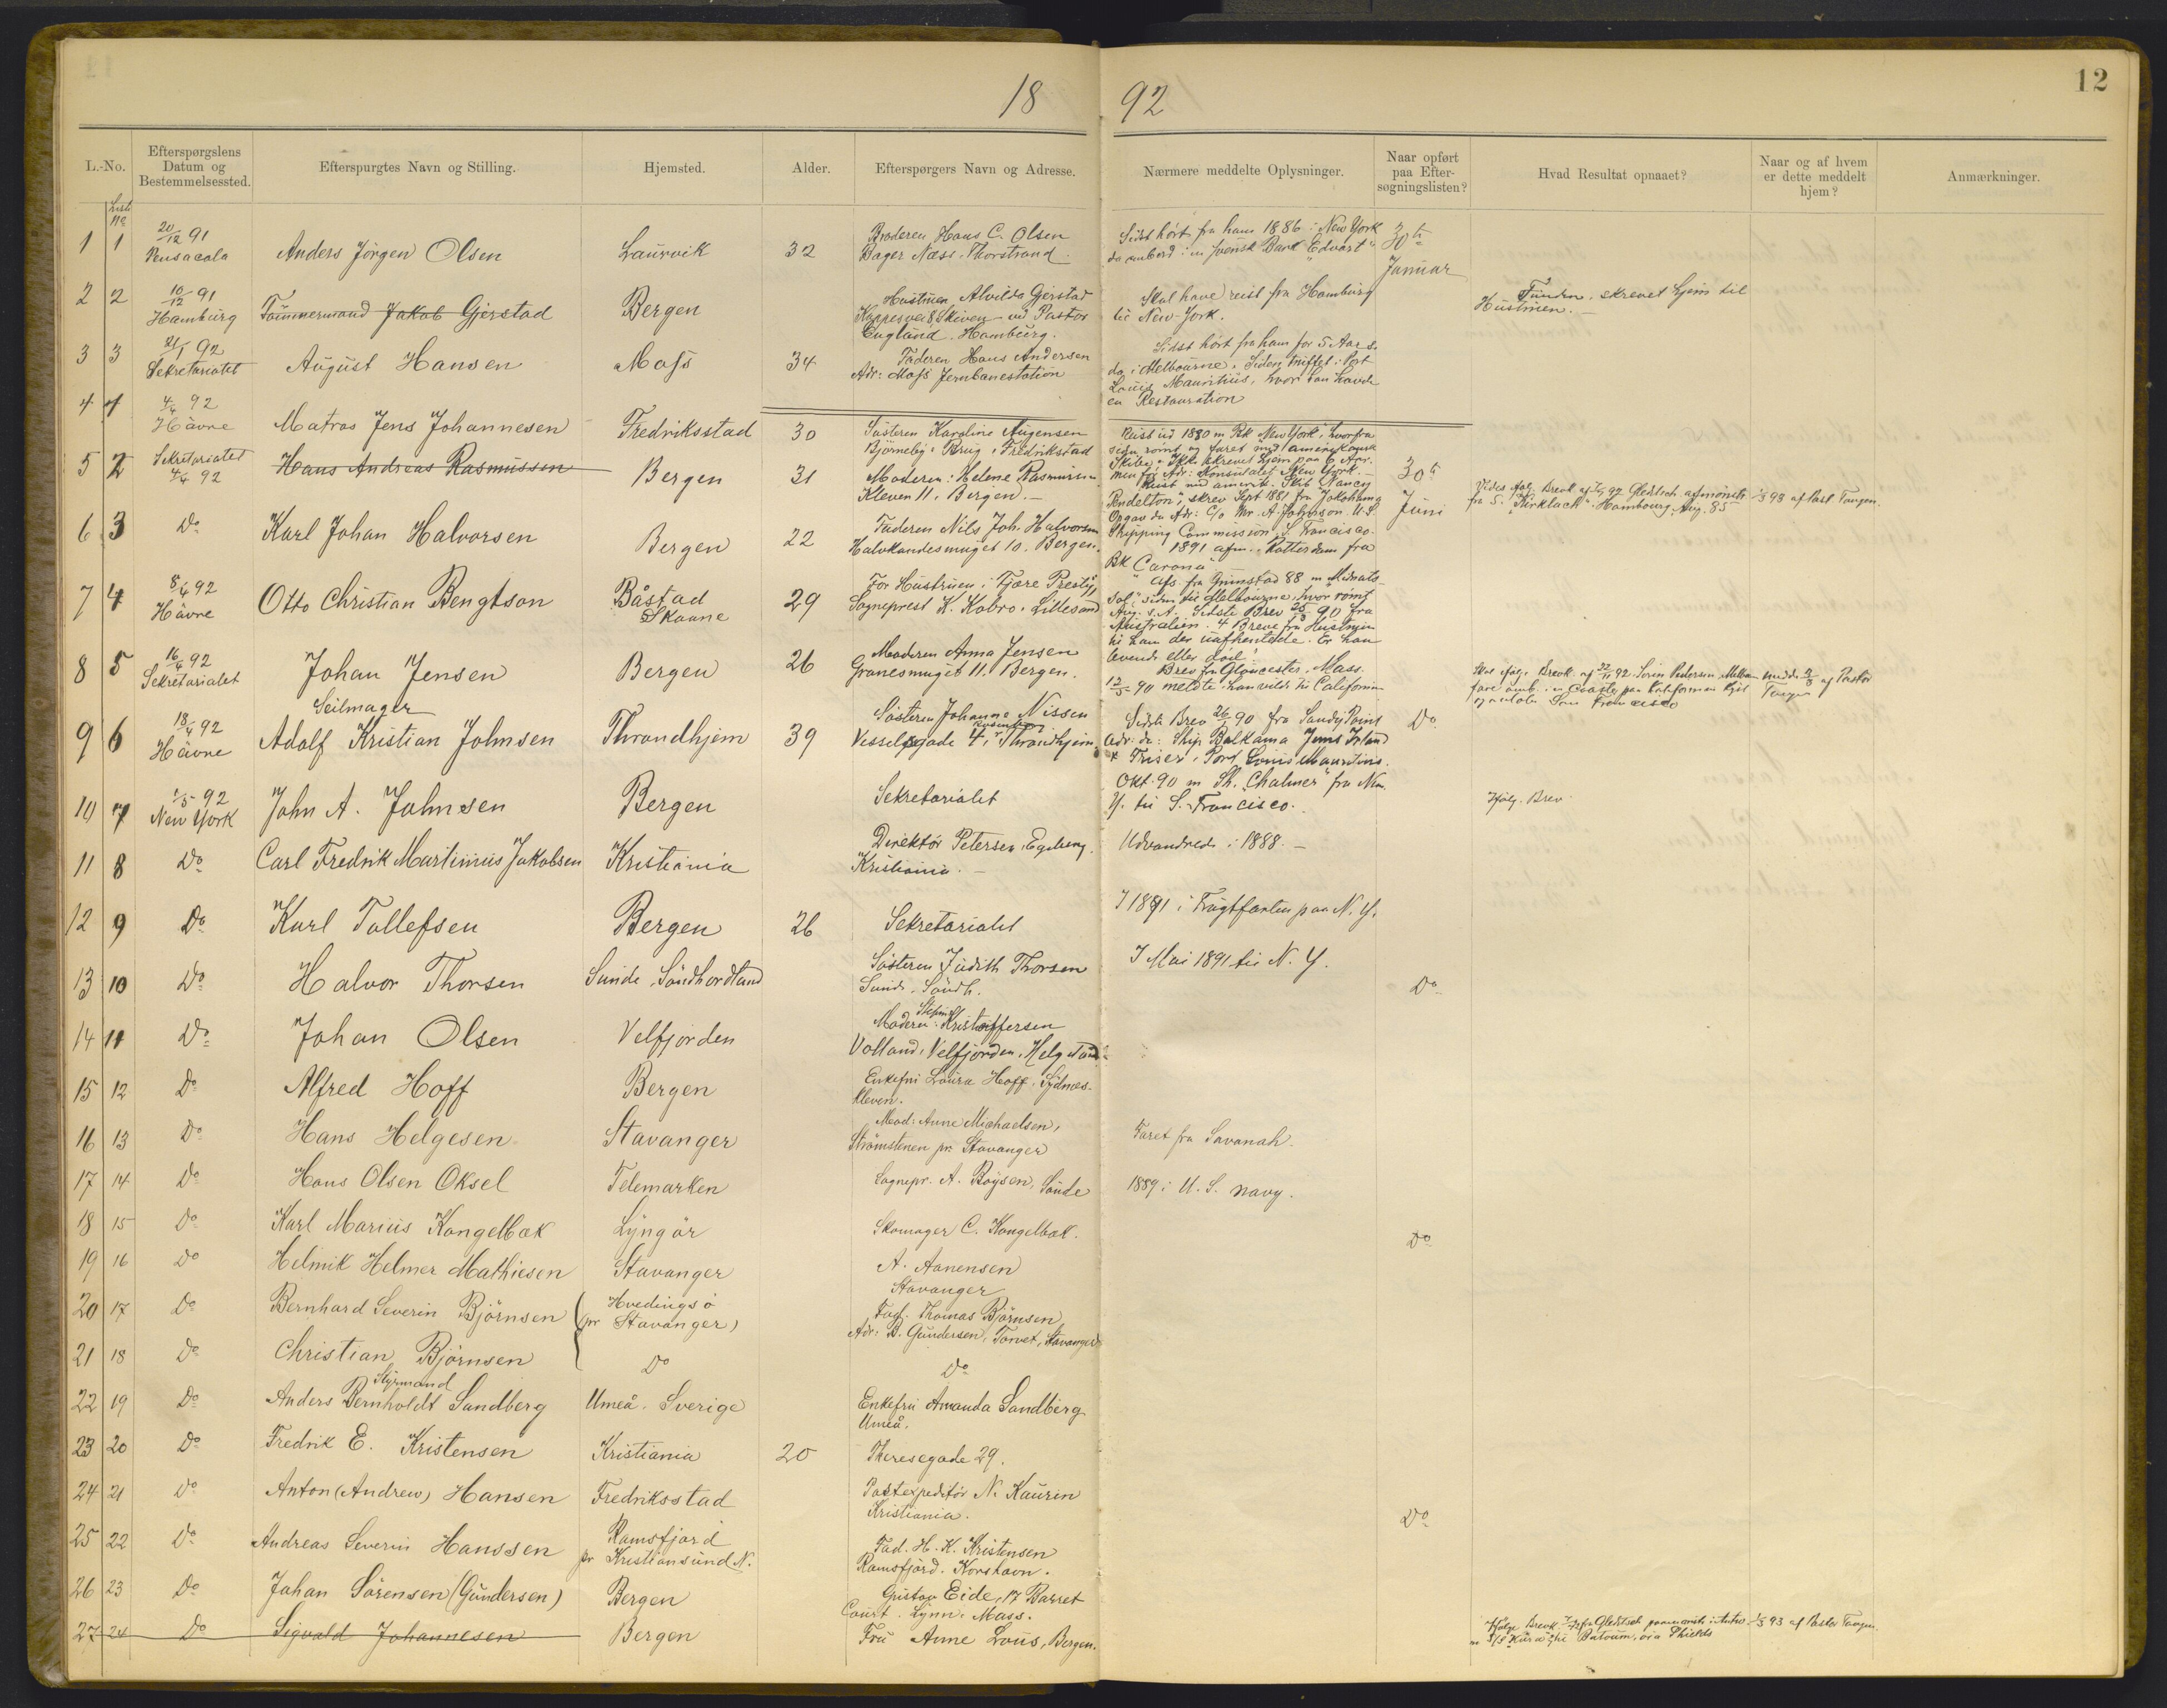 18 92
12
L.-No.
Efterspørgslens Datum og Bestemmelsessted.
Efterspurgtes Navn og Stilling.
Hjemsted.
Alder.
Efterspørgers Navn og Adresse.
Nærmere meddelte Oplysninger.
Naar opført paa Eftersøgningslisten?
Hvad Resultat opnaaet?
Naar og af hvem er dette meddelt hjem?
Anmærkninger.
Liste No
1 1 20/12 91 Anders Jörgen Olsen Laurvik 32 Broderen Hans C. Olsen Sidst hört fra ham 1886 i New York 30te
Pensacola Bager Næss. Thorstrand. da ombord i en svensk Bark "Edvart" Januar
2 2 10/12 91 Tömmermand Jakob Gjerstad Bergen Hustruen Alvilda Gjerstad Skal have reist fra Hamburg Funden. skrevet hjem til
Hamburg Skiven ved Pastor til New-York. Hustruen.
England. Hamburg.
3 3 21/1 92 August Hansen Moss 34 Faderen Hans Andersen Sidst hört fra ham for 5 Aar s.
Sekretariatet Adr: Moss Jernbanestation da i Melbourne. Siden truffet i Port
Louis Mauritius, hvor han havde
en Restauration
4 1 4/4 92 Matros Jens Johannesen Fredriksstad 30 Søsteren Karoline Augensen Reist ud 1880 m Bk "New York", hvorfra
Hâvre Björneby Brug, Fredrikstad siden römt og faret med amerikansk
Skibe. Ikke skrevet hjem paa 6 Aar.
men för Adr: Konsulatet New York.
5 2 Sekretariatet 4/4 92 Hans Andreas Rasmussen Bergen 31 Moderen: Helene Rasmussen Reist med amerik. Skib "Nancy 30te
Kleven 11. Bergen. Pendelton", skrev Sept 1881 fra Yokohama Juni
Opgav da Adr: C/o Mr. A. Johnson. U.S.
Shipping Commission, S. Francisco.
6 3 Do Karl Johan Halvorsen Bergen 22 Faderen Nils Joh. Halvorsen 1891 afm. i Rotterdam fra
Halvkandesmuget 10. Bergen. Bk "Carona"
7 4 8/4 92 Otto Christian Bengtson Båstad 29 For Hustruen i Fjære Prestgj. afs. fra Grimstad 88 m
Hâvre Skaane Sogneprest K. Kobro. Lillesand siden til Melbourne, hvor römt
Aug. s. A. Sidste Brev 25/3 90 fra
Australien. 4 Breve fra Hustruen
til ham der uafhentede. Er han
levende eller död?
8 5 16/4 92 Johan Jensen Bergen 26 Moderen Anna Jensen Brev fra Gloucester, Mass.
Sekretariatet Granesmuget 11. Bergen. 12/5 90 meldte han vilde til Californien
Seilmager
9 6 18/4 92 Adolf Kristian Johnsen Throndhjem 39 Søsteren Johanne Nissen Sidste Brev 26/1 90 fra Sandy Point Do
Hâvre Vesselsgade 4, Throndhjem. Adr: da: Ship Balkama
Port Louis Mauritius.
10 7 1/5 92 John A. Johnsen Bergen Sekretariatet Okt. 90 m Sk. "Chalmer" fra New Ifölg. Brev
New York Y. til S. Francisco.
11 8 Do Carl Fredrik Martinius Jakobsen Kristiania Direktör Petersen, Egeberg. Udvandrede i 1888.
Kristiania.
12 9 Do Karl Tollefsen Bergen 26 Sekretariatet I 1891 i Fragtfarten paa N. Y.
13 10 Do Halvor Thorsen Sunde, Söndhordland Søsteren Judith Thorsen I Mai 1891 til N. Y. Do
Sunde. Söndh.
14 11 Do Johan Olsen Velfjorden Moderen: Kristoffersen
Volland, Velfjorden, Helgeland
15 12 Do Alfred Hoff Bergen Enkefru Laura Hoff, Sydnes-
kleven.
16 13 Do Hans Helgesen Stavanger Mod: Anne Michaelsen, Faret fra Savanah.
Strömstenen pr Stavanger
17 14 Do Hans Olsen Oksel Telemarken Sognepr. A. Böysen, Sande 1889 i U. S. navy.
18 15 Do Karl Marius Kongelbæk Lyngör Skomager C. Kongelbæk. Do
19 16 Do Helmik Helmer Mathiesen Stavanger A. Aanensen
Stavanger
20 17 Do Bernhard Severin Björnsen Hvedingsö Fad. Thomas Björnsen
(pr Stavanger) Adr: B. Gundersen, Torvet, Stavanger
21 18 Do Christian Björnsen Do Do
Styrmand
22 19 Do Anders Bernholdt Sandberg Umeå. Sverige Enkefru Amanda Sandberg
Umeå.
23 20 Do Fredrik E. Kristensen Kristiania 20 Theresegade 29.
24 21 Do Anton (Andrew) Hansen Fredriksstad Postexpeditör N. Kaurin Do
Kristiania.
25 22 Do Andreas Severin Hanssen Ramsfjord Fad. H. K. Kristensen
pr Kristiansund N. Ramsfjord. Korshavn.
26 23 Do Johan Sörensen (Gundersen) Bergen Gustav Eide, 17 Barret
Court. Lynn. Mass.
27 24 Do Sigvald Johannesen Bergen Fru Anne Lous, Bergen. 93 af Pastor Tangen.